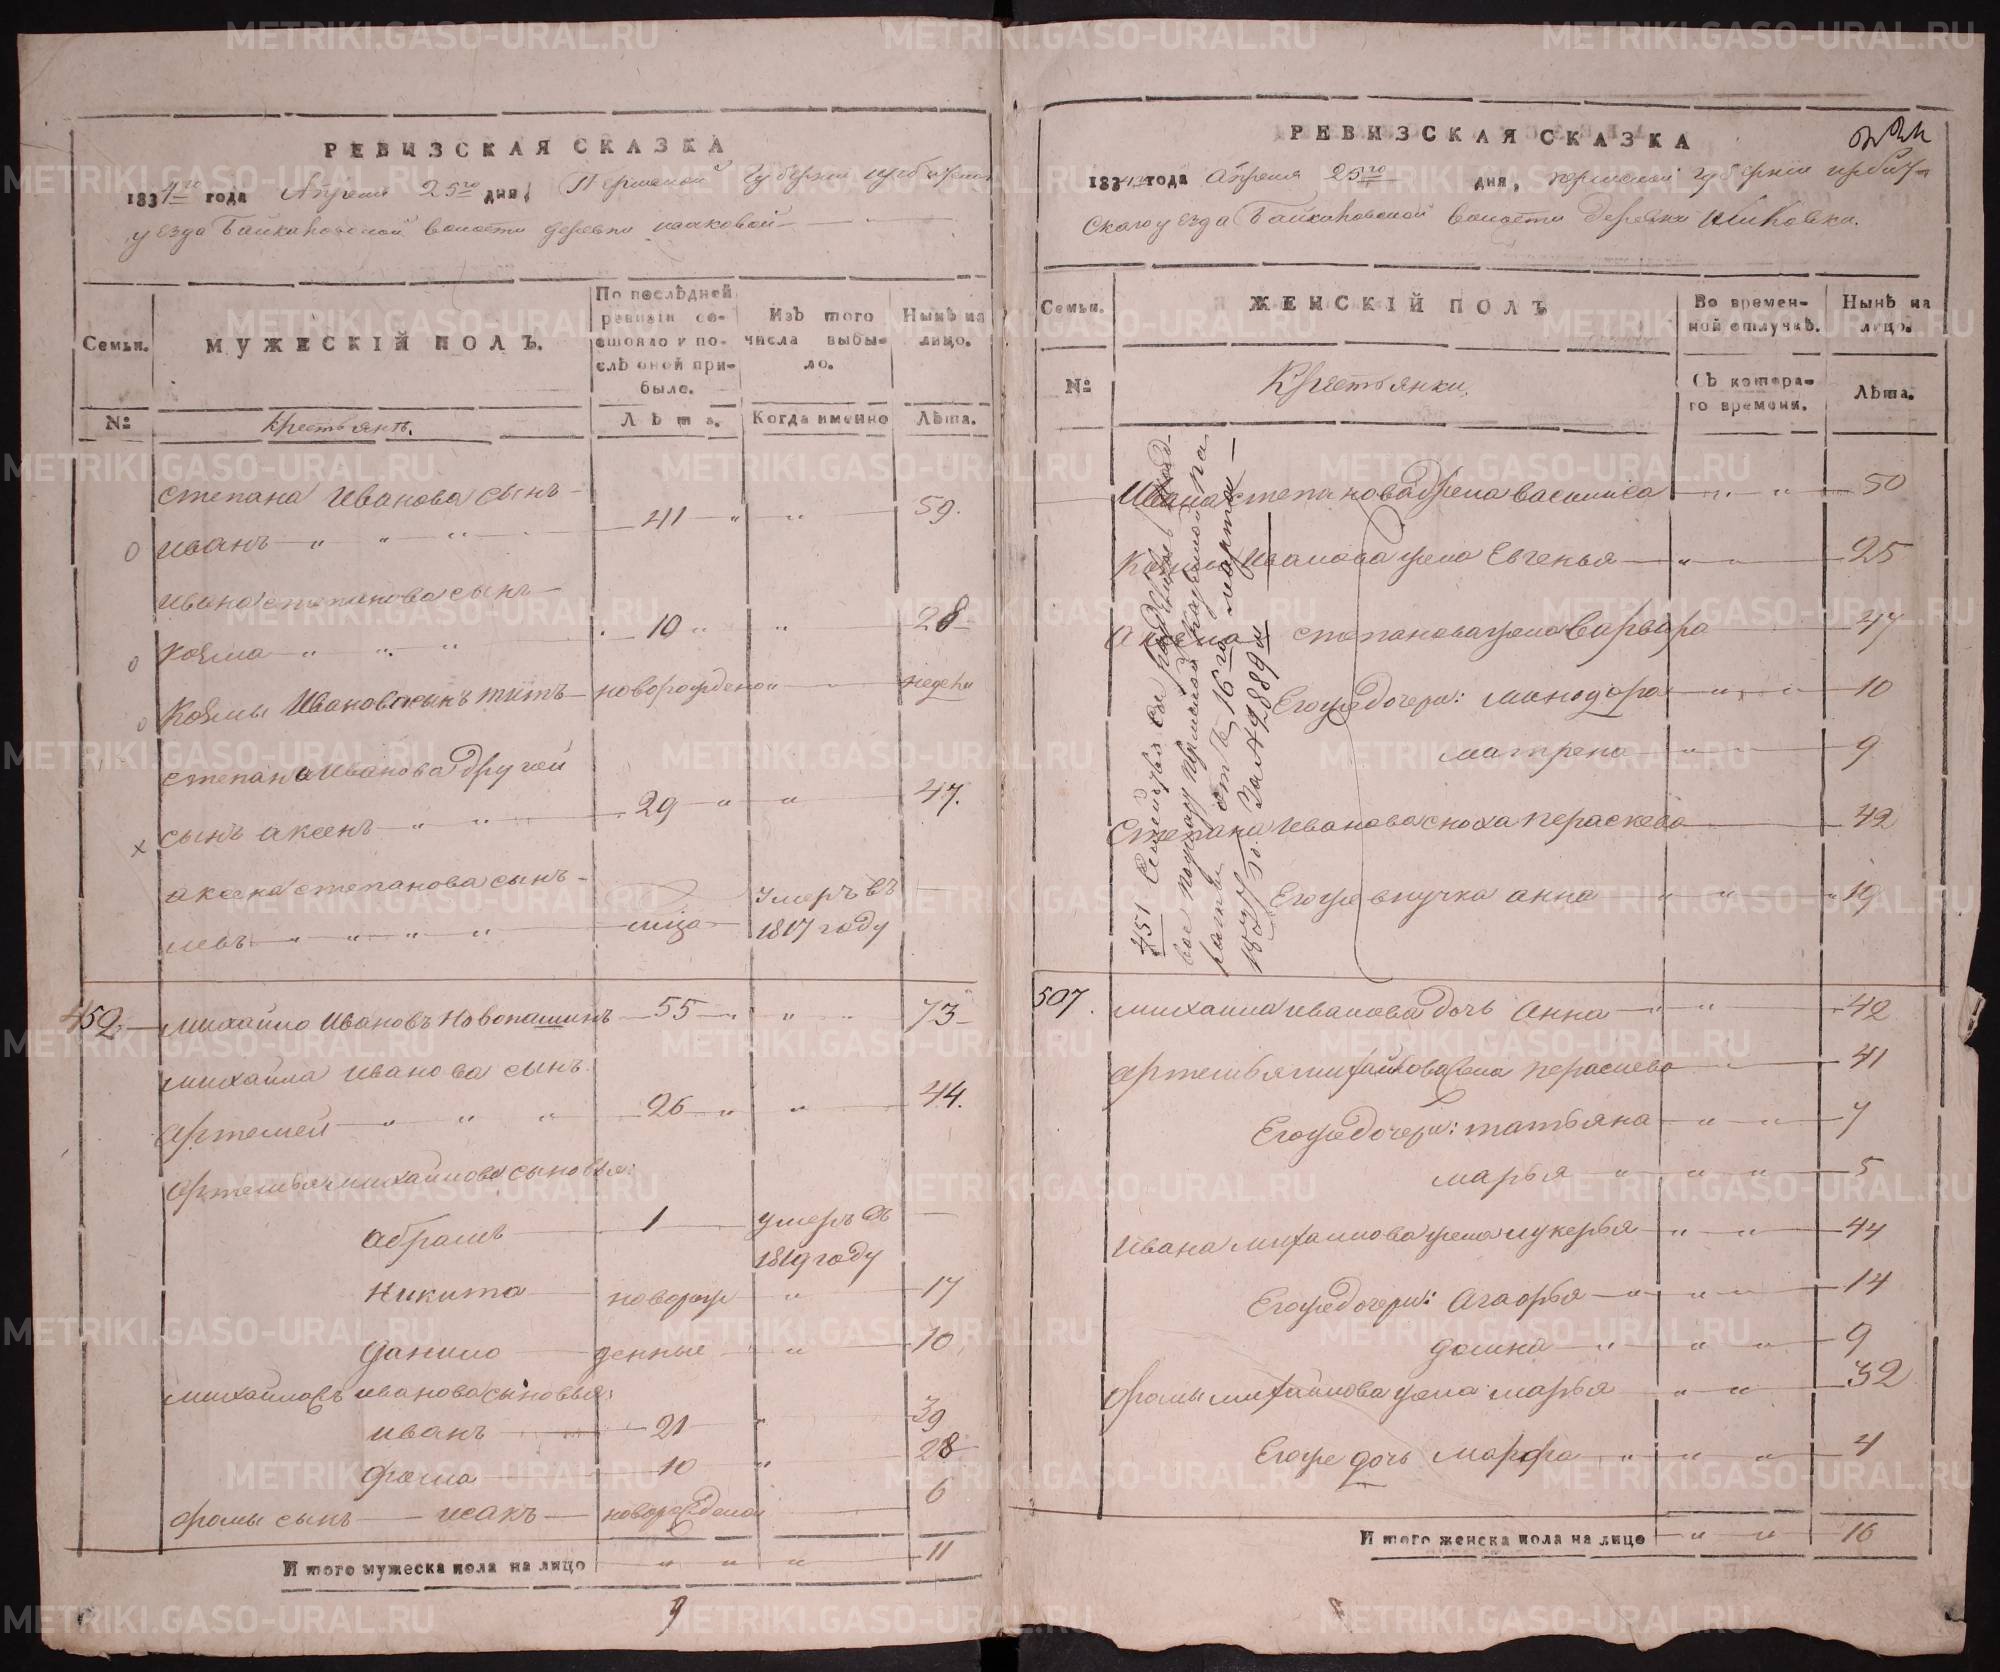 РЕВИЗСКАЯ СКАЗКА
1834го года Апреля 25го дня, Пермской Губернии Ирбитскаго
уезда Байкаловской волости деревни
Семьи.
МУЖЕСКІЙ ПОЛЪ.
По послѣдней ревизіи состояло и послѣ оной прибыло.
Изъ того числа выбыло.
Нынѣ на лицо.
№
Крестьянъ.
Лѣта.
Когда именно
Лѣта.
Степана Иванова сынъ
Иванъ 41 59.
Ивана Степанова сынъ
Козма 10 28
Козмы Иванова сынъ Титъ новорожденой недели
Степана Иванова другой
сынъ Аксенъ 29 47.
Аксена Степанова сынъ умеръ въ
Левъ 1817 году
452 Михайло Ивановъ Новопашинъ 55 73
Михайла Иванова сынъ
Артемей 26 44.
Артемья Михайлова сыновья:
Абрамъ 1 умеръ въ
1819 году
Никита новорож 17
Данило денные 10
Михайловъ Иванова сыновья:
Иванъ 21 39
Фома 10 28
Фомы сынъ Исакъ новорожденой 6
И того мужеска пола на лицо 11
РЕВИЗСКАЯ СКАЗКА
1834го года Апреля 25го дня, Пермской Губернии Ирбит-
скаго уезда Байкаловской волости деревни
Семьи.
ЖЕНСКІЙ ПОЛЪ
Во временной отлучкѣ.
Нынѣ на лицо.
№
Крестьянки.
Съ котораго времени.
Лѣта.
Ивана Степанова жена Василиса 50
Козмы Иванова жена Евгенья 25
Аксена Степанова жена Варвара 47
Егоже дочери: Минодора 10
Матрена 9
Степана Иванова сноха Пераскева 42
Егоже внучка Анна 19
451
от 16го марта
507. Михаила Иванова дочь Анна 42
Артемья Михайлова жена Пераскева 41
Егоже дочери: Татьяна 7
Марья 5
Ивана Михайлова жена Лукерья 44
Егоже дочери: Агафья 14
Домна 9
Фомы Михайлова жена Марья 32
Егоже дочь Марфа 4
И того женска пола на лицо 16
METRIKI.GASO-URAL.RU